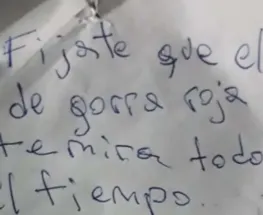 Fijate que el
de gorra roja
te mira todo
el tiempo.